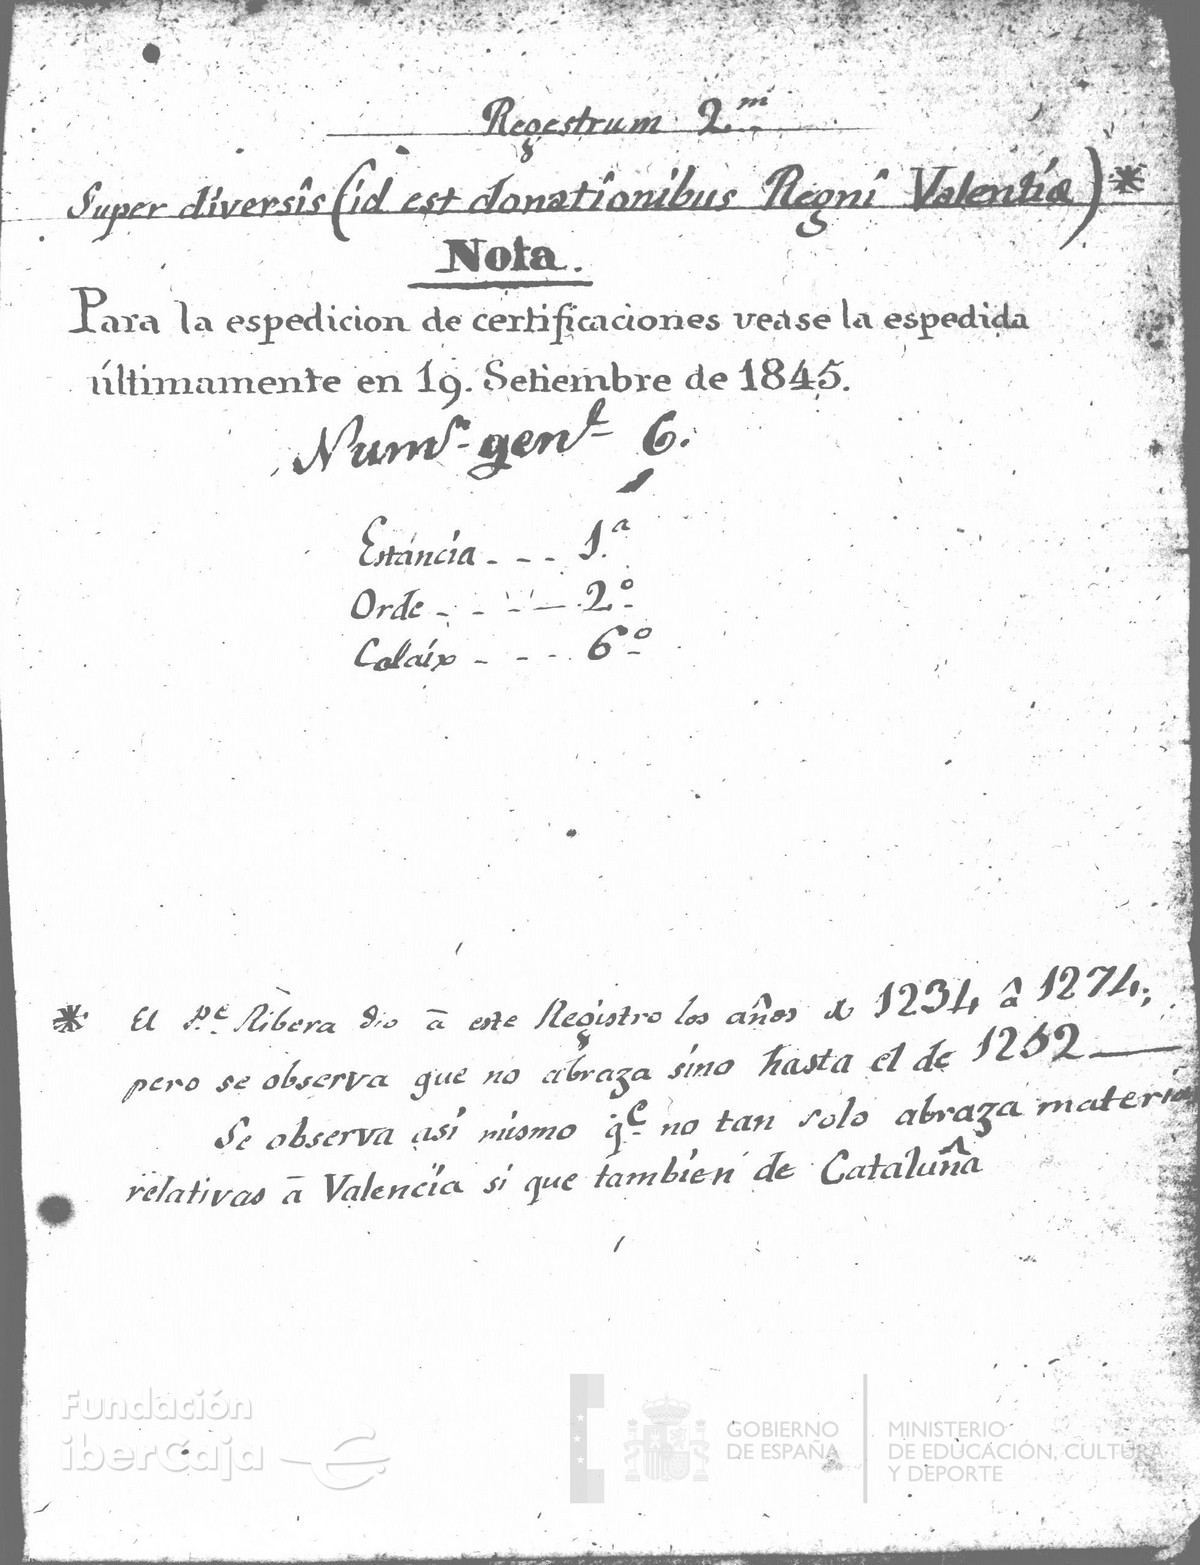 Regestrum 2.m
Super diversis (id est donationibus Regni Valentiæ) *
Nota.
Para la espedicion de certificaciones vease la espedida
últimamente en 19. Setiembre de 1845.
Numº genl 6.
Estáncia - - - 1.ª
Orde - - - - 2º
Calaix - - - 6º
* El P.e Ribera dio á este Registro los años de 1234 â 1274;
pero se observa que no abraza sino hasta el de 1252
Se observa asi mismo q.e no tan solo abraza materias
relativas â Valencia si que tambien de Cataluña
Fundación
iberCaja
GOBIERNO
DE ESPAÑA
MINISTERIO
DE EDUCACIÓN, CULTURA
Y DEPORTE